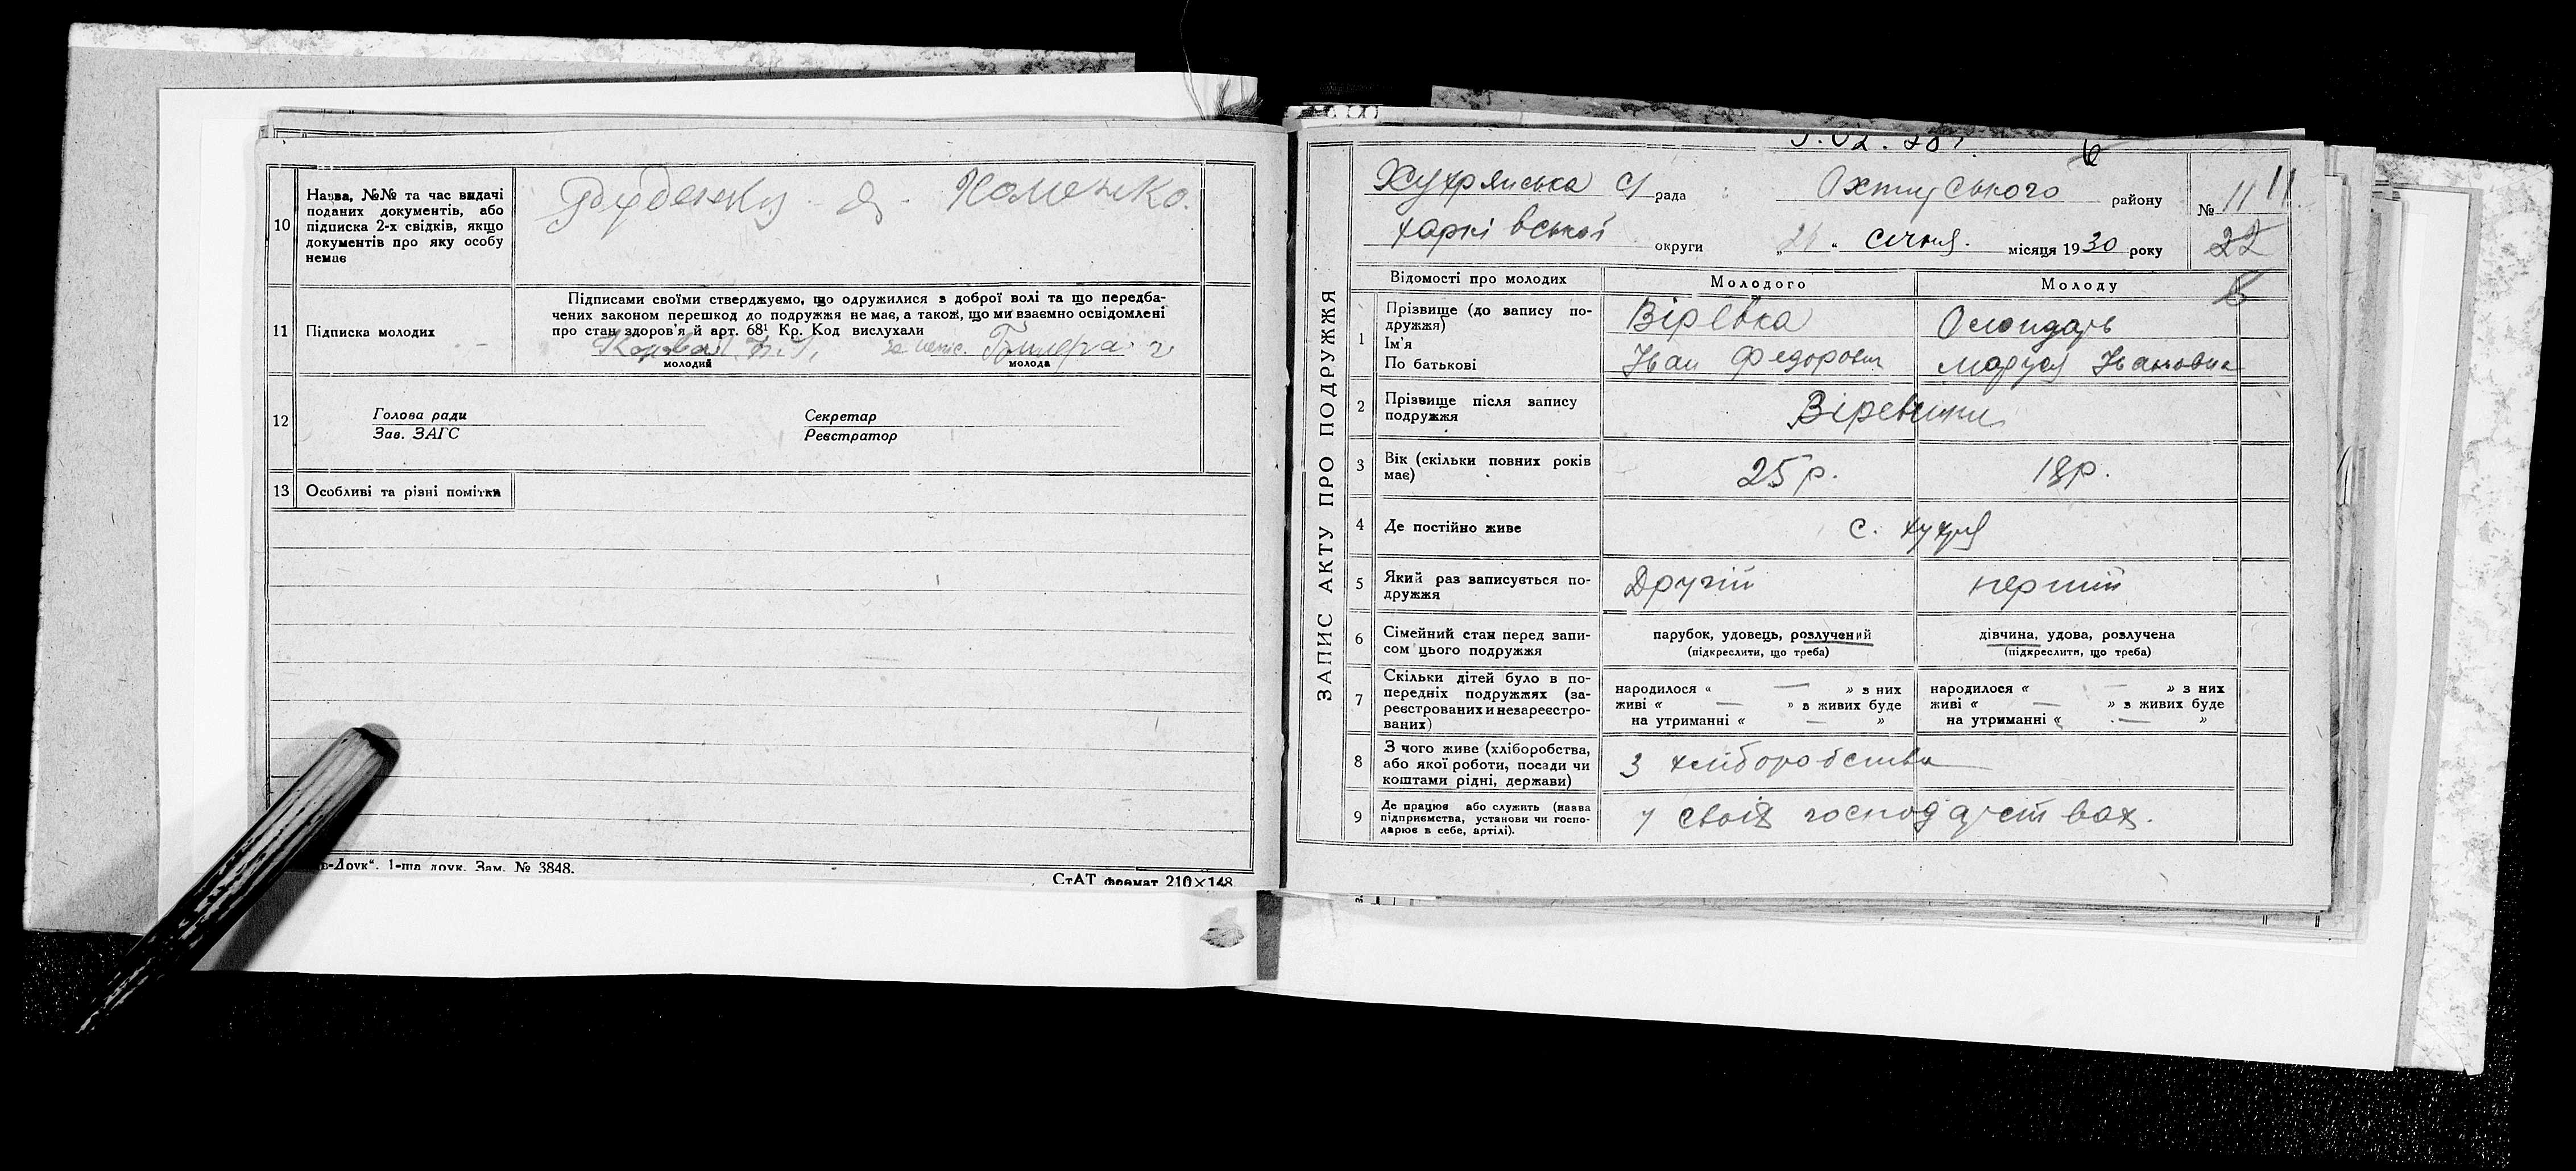 10
Назва, №№ та час видачі
поданих документів, або
підписка 2-х свідків, якщо
документів про яку особу
немає
11
Підписка молодих
Підписами своїми стверджуємо, що одружилися з доброї волі та що передба-
чених законом перешкод до подружжя не має, а також, що ми взаємно освідомлені
про стан здоров'я й арт. 68¹ Кр. Код вислухали
молодий
молода
12
Голова ради
Зав. ЗАГС
Секретар
Реєстратор
13
Особливі та різні помітки
-Друк“. 1-ша друк. Зам. № 3848.
СтАТ формат 210×148
ЗАПИС АКТУ ПРО ПОДРУЖЖЯ
Хухрянська с/рада Охтирського району № 11 11
харківської округи „ “ січня місяця 1930 року 22
Відомості про молодих Молодого Молоду
1
Прізвище (до запису по-
дружжя)
Ім'я
По батькові
Вірьовка
Іван Федорович
Маруся Івановна
2
Прізвище після запису
подружжя
3
Вік (скільки повних років
має)
25 р.
18р.
4
Де постійно живе
с. Хухря
5
Який раз записується по-
дружжя
Другій
перший
6
Сімейний стан перед запи-
сом цього подружжя
парубок, удовець, розлучений
(підкреслити, що треба)
дівчина, удова, розлучена
(підкреслити, що треба)
7
Скільки дітей було в по-
передніх подружжях (за-
реєстрованих и незареєстро-
ваних)
народилося « — » з них
живі « — » в живих буде
на утриманні « — »
народилося « — » з них
живі « — » в живих буде
на утриманні « — »
8
З чого живе (хліборобства,
або якої роботи, посади чи
коштами рідні, держави)
З хліборобства
9
Де працює або служить (назва
підприємства, установи чи госпо-
дарює в себе, артілі).
у своїх господарствах.